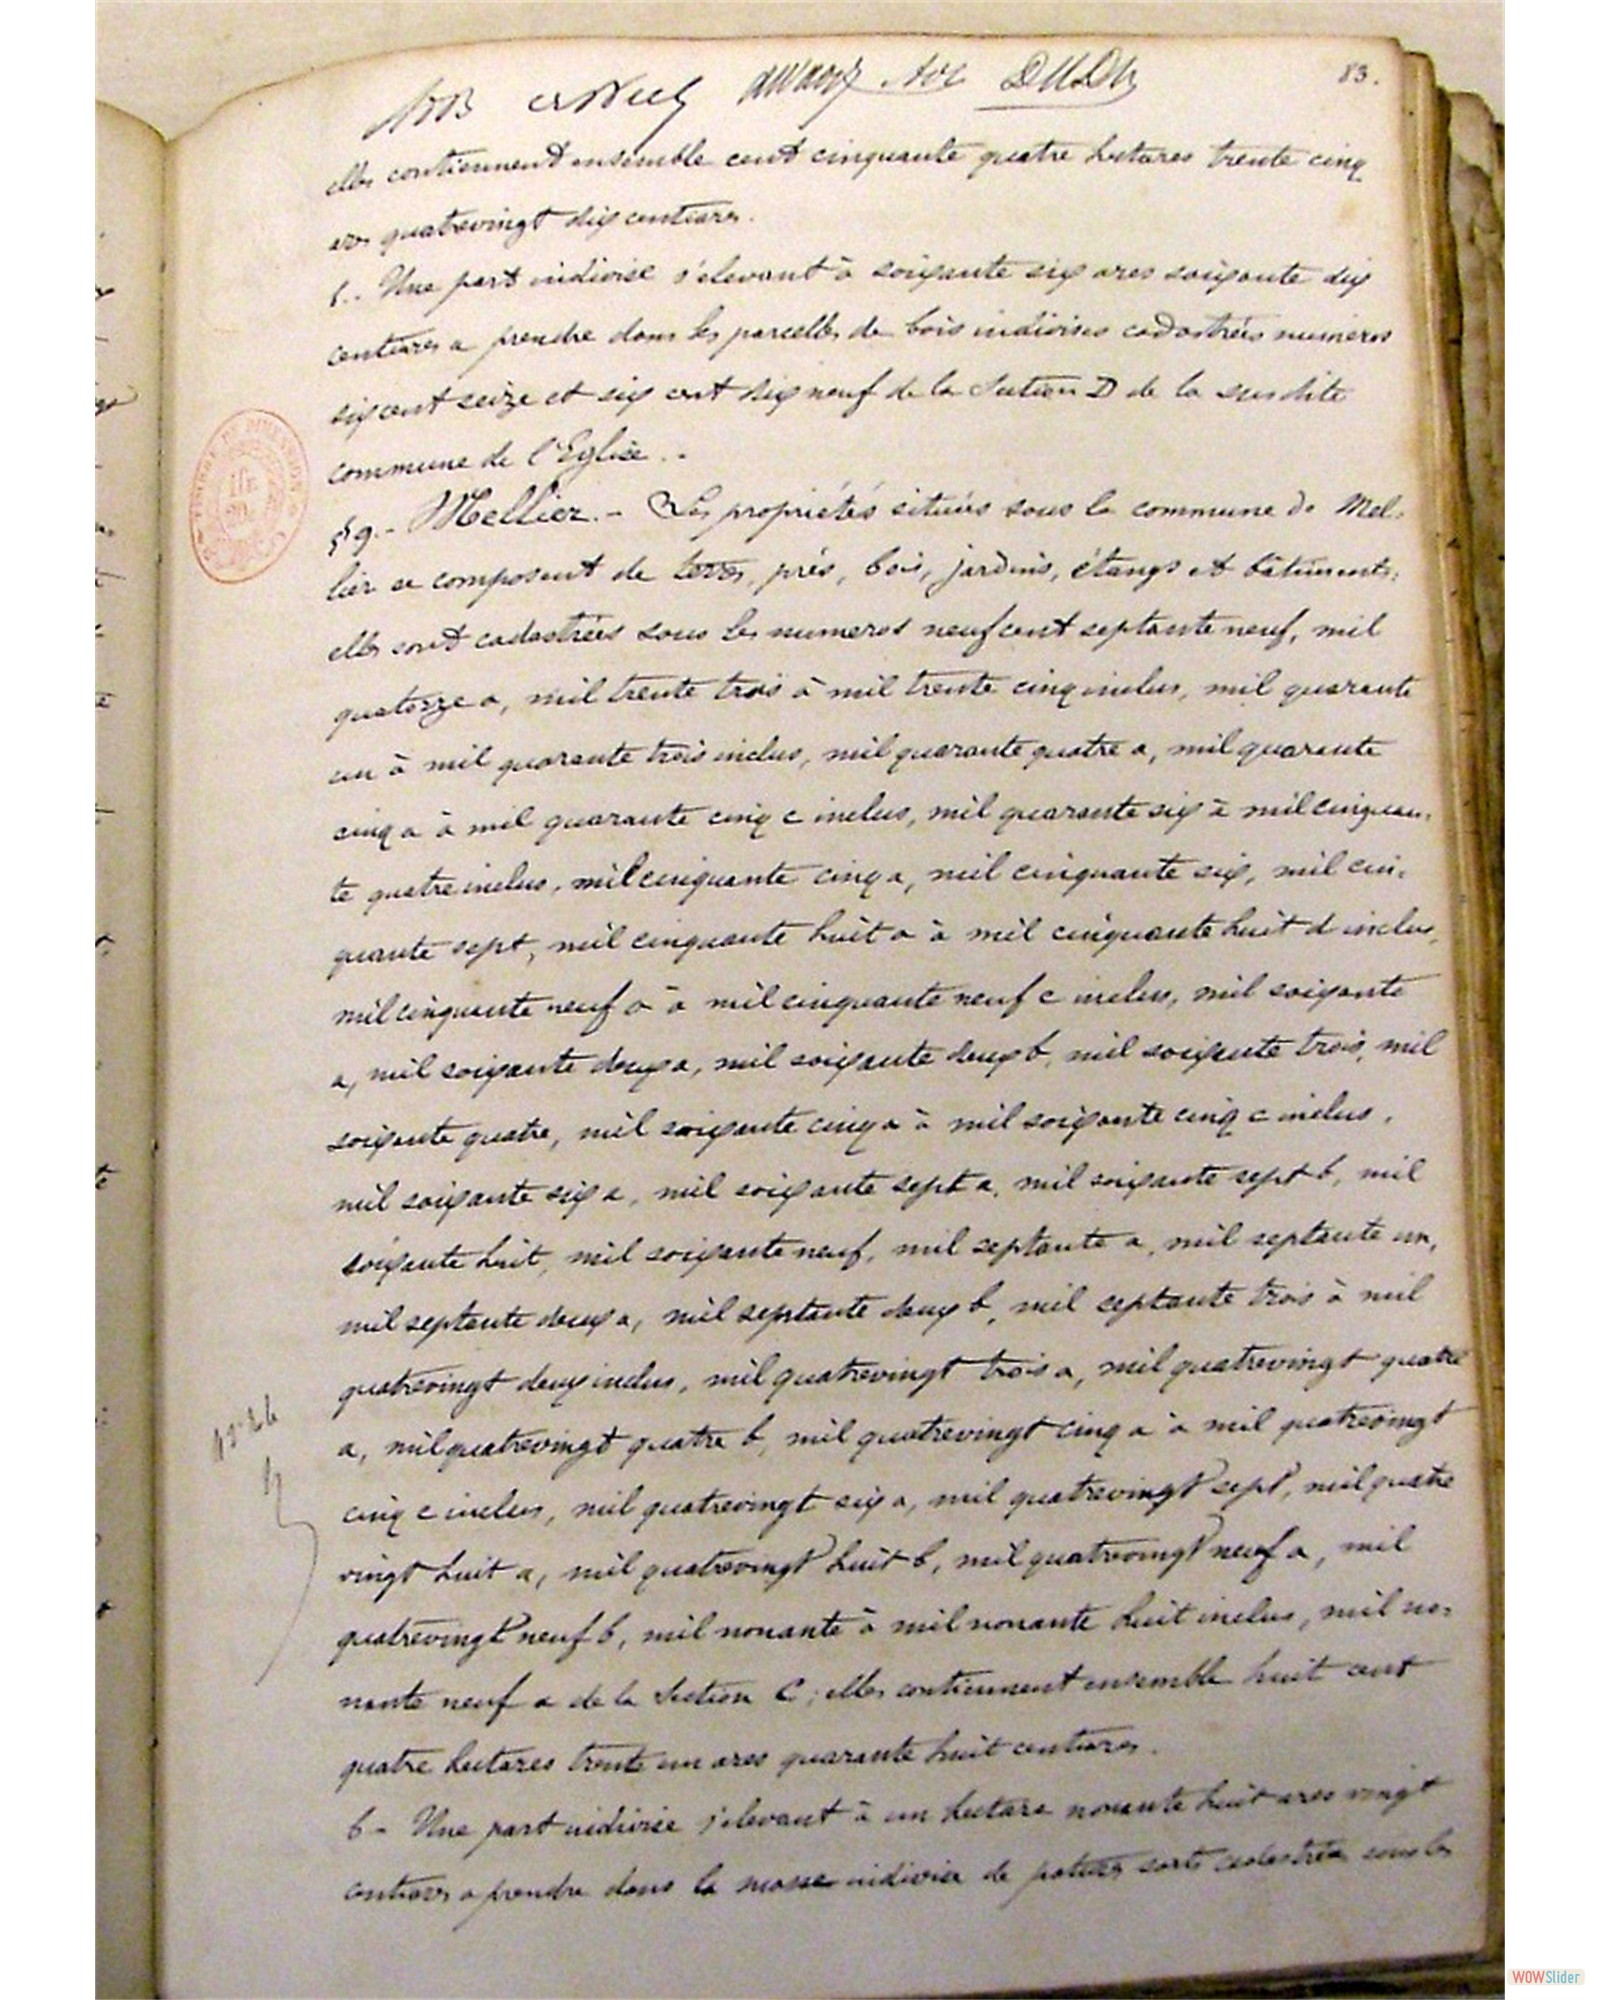 83.
elles contiennent ensemble cent cinquante quatre hectares trente cinq
ares quatrevingt dix centiares.
b.- Une part indivise s'elevant à soixante six ares soixante dix
centiares a prendre dans les parcelles de bois indivises cadastrées numeros
six cent seize et six cent dix neuf de la Section D de la susdite
commune de l'Eglise. -
§ 9.- Mellier. - Les propriétés situées sous la commune de Mel-
lier se composent de terres, prés, bois, jardins, étangs et bâtiments;
elles sont cadastrées sous les numeros neuf cent septante neuf, mil
quatorze a, mil trente trois à mil trente cinq inclus, mil quarante
un à mil quarante trois inclus, mil quarante quatre a, mil quarante
cinq a à mil quarante cinq c inclus, mil quarante six à mil cinquan-
te quatre inclus, mil cinquante cinq a, mil cinquante six, mil cin-
quante sept, mil cinquante huit a à mil cinquante huit d inclus,
mil cinquante neuf a à mil cinquante neuf c inclus, mil soixante
a, mil soixante deux a, mil soixante deux b, mil soixante trois, mil
soixante quatre, mil soixante cinq a à mil soixante cinq c inclus,
mil soixante six a, mil soixante sept a, mil soixante sept b, mil
soixante huit, mil soixante neuf, mil septante a, mil septante un,
mil septante deux a, mil septante deux b, mil septante trois à mil
quatrevingt deux inclus, mil quatrevingt trois a, mil quatrevingt quatre
a, mil quatrevingt quatre b, mil quatrevingt cinq a à mil quatrevingt
cinq c inclus, mil quatrevingt six a, mil quatrevingt sept, mil quatre
vingt huit a, mil quatrevingt huit b, mil quatrevingt neuf a, mil
quatrevingt neuf b, mil nonante à mil nonante huit inclus, mil no-
nante neuf a de la Section C; elles contiennent ensemble huit cent
quatre hectares trente un ares quarante huit centiares.
b - Une part indivise s'elevant à un hectare nonante huit ares vingt
centiares a prendre dans la masse indivise de sarts cadastrée sous les
WOWSlider